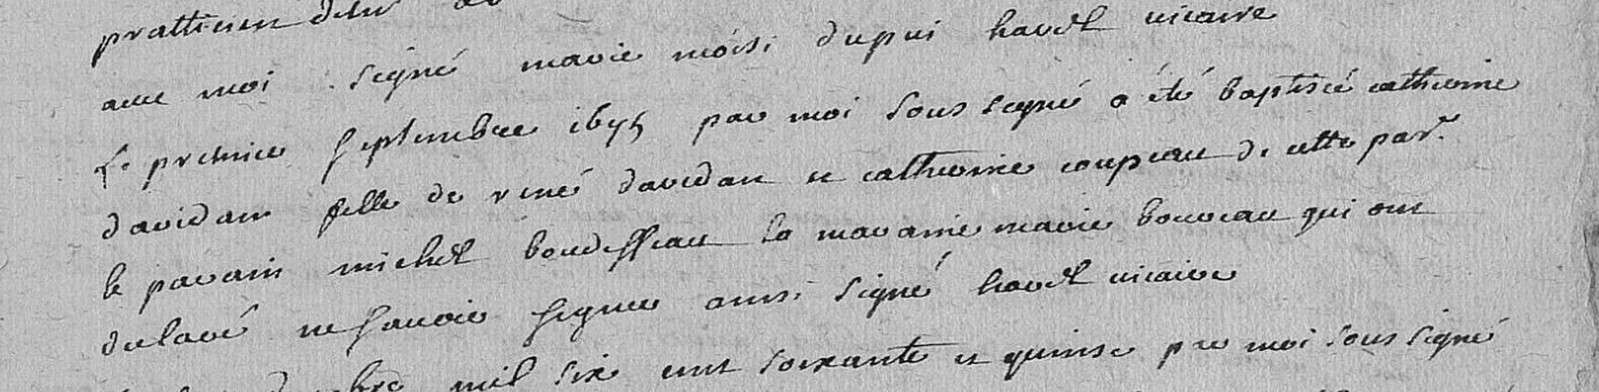 pratticien
avec moi signé marie mois dupui havet vicaire
Le premier septembre 1675 par moi sous signé a été baptisée catherine
davidau fille de réné davidau et catherine coupeau de cette par.
le parain michel boudesseau la maraine marie bouveau qui ont
declaré ne savoir signer ainsi signé havet vicaire
mil six cent soixante et quinse par moi sous signé